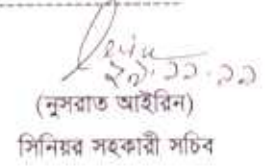 ২০.১১.১১
(নুসরাত আইরিন)
সিনিয়র সহকারী সচিব